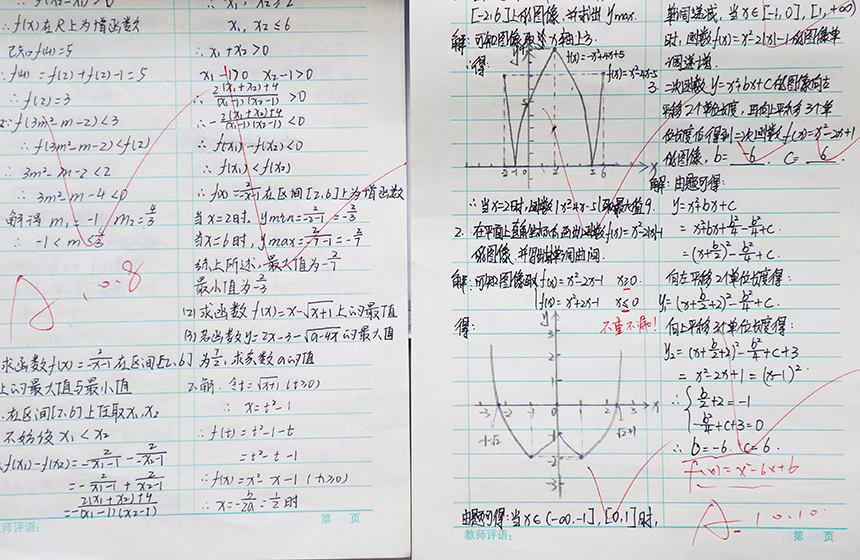 ∴ f(x)在R上为增函数
已知f(4)=5
∴ f(4)=f(2)+f(2)-1=5
∴ f(2)=3
f(3m²-m-2)<3
∴ f(3m²-m-2)<f(2)
∴ 3m²-m-2<2
∴ 3m²-m-4<0
解得 m₁=-1 m₂=4/3
∴ -1<m≤4/3
A 10.8
求函数f(x)=2/-x-1在区间[2,6]
上的最大值与最小值
在区间[2,6]上任取x₁,x₂
不妨设 x₁<x₂
f(x₁)-f(x₂)=2/-x₁-1 - 2/-x₂-1
=-2/x₁-1 + 2/x₂-1
=-2(x₁+x₂)+4/(x₁-1)(x₂-1)
教师评语:
x₁,x₂≤6
∴ x₁+x₂>0
x₁-1>0 x₂-1>0
∴ 2(x₁+x₂)+4/(x₁-1)(x₂-1)>0
∴ -2(x₁+x₂)+4/(x₁-1)(x₂-1)<0
∴ f(x₁)-f(x₂)<0
∴ f(x₁)<f(x₂)
∴ f(x)=2/-x-1在区间[2,6]上为增函数
当x=2时, ymin=2/-2-1=-2/3
当x=6时, ymax=2/-7-1=-2/7
综上所述,最大值为-2/7
最小值为-2/3
(2)求函数f(x)=x-√x+1上的最值
(3)若函数y=2x-3-√a-4x的最大值
为7/2,求实数a的值
2.解:令t=√x+1 (t≥0)
∴ x=t²-1
∴ f(t)=t²-1-t
=t²-t-1
∴ f(x)=x²-x-1 (t≥0)
∴ x=-b/2a=1/2时
第 页
[-2,6]上的图像,并求出ymax.
解:可知图像取 x轴上方.
得:
f(x)=-x²+4x+5
f(x)=x²-4x-5
5
-2 -1 0 1 2 5 6 x
∴当x=2时,函数|x²-4x-5|取最大值9.
2. 在平面上直角坐标系画出函数f(x)=x²-2|x|-1
的图像.并写出单调区间.
解:可知图像取{f(x)=x²-2x-1 x≥0.
{f(x)=x²+2x-1 x≤0
不重不漏!
得:
y
3
2
1
-3 -2 -1 0 1 2 3 x
-1-√2 √2+1
-1
-2
-3
由题可得:当x∈(-∞,-1],[0,1]时,
教师评语:
单调递减,当x∈[-1,0],[1,+∞)
时,函数f(x)=x²-2|x|-1的图像单
调递增.
3. 二次函数y=x²+bx+c的图像向左
平移2个单位长度,再向上平移3个单
位长度后得到二次函数f(x)=x²-2x+1
的图像,b= -6 c= 6 .
解:由题可得:
y=x²+bx+c
=x²+bx+b²/4-b²/4+c.
=(x+b/2)²-b²/4+c.
向左平移2个单位长度得:
y₁=(x+b/2+2)²-b²/4+c.
向上平移3个单位长度得:
y₂=(x+b/2+2)²-b²/4+c+3
=x²-2x+1=(x-1)².
∴{b/2+2=-1
{-b²/4+c+3=0
∴ b=-6. c=6.
f(x)=x²-6x+6
A- 10.10.
第 页